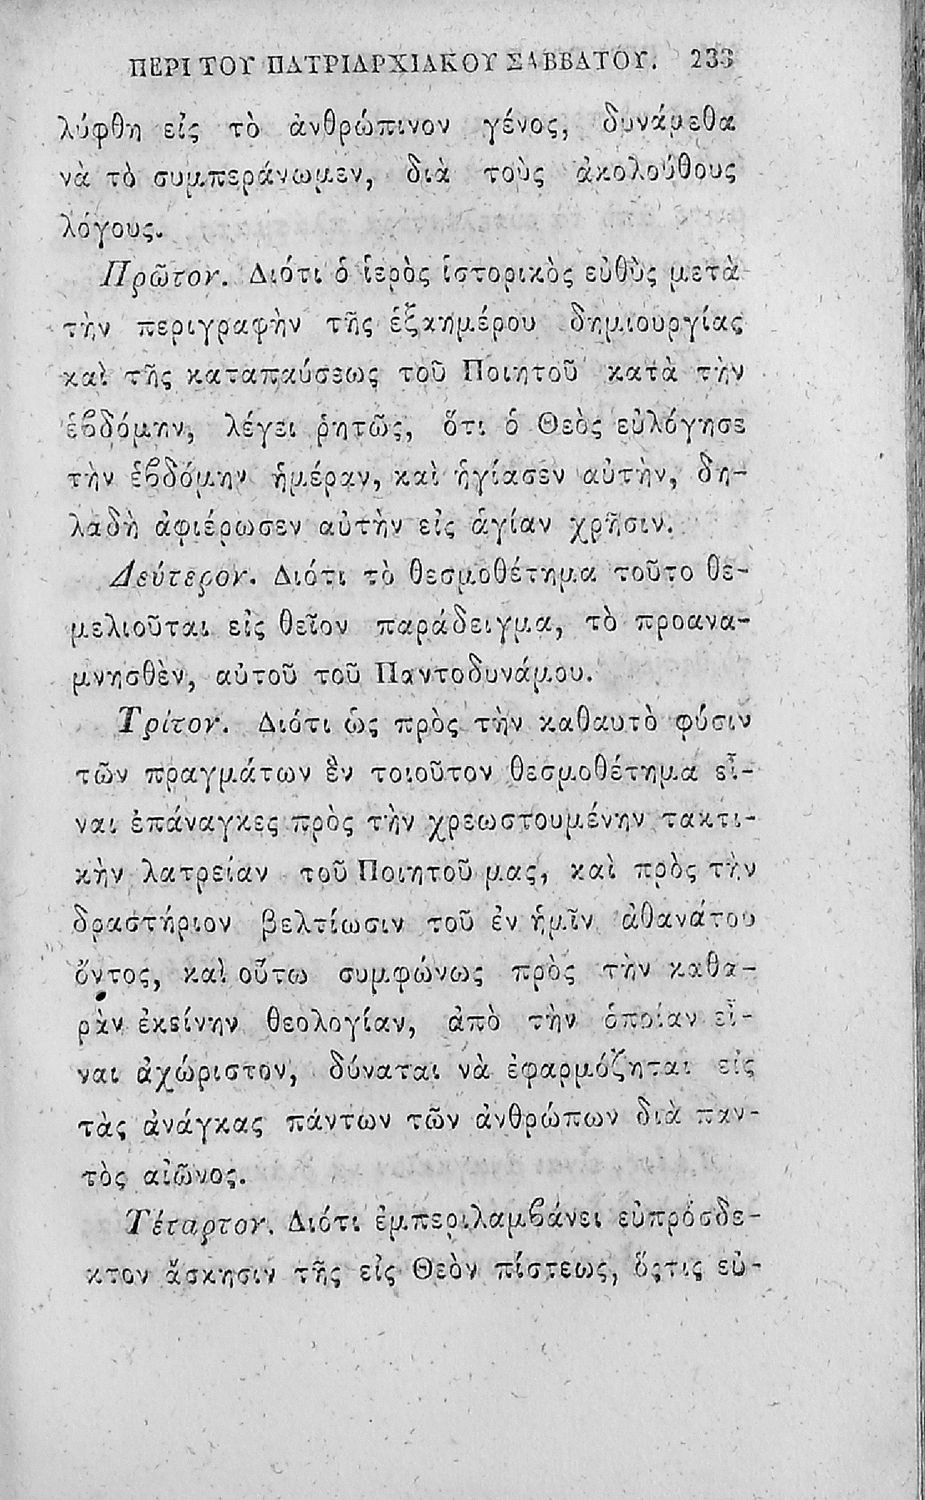 ΠΕΡΙ ΤΟΥ ΠΑΤΡΙΑΡΧΙΑΚΟΥ ΣΑΒΒΑΤΟΥ. 233
λύφθη εἰς τὸ ἀνθρώπινον γένος, δυνάμεθα
νὰ τὸ συμπεράνωμεν, διὰ τοὺς ἀκολούθους
λόγους.
Πρῶτον. Διότι ὁ ἱερὸς ἱστορικὸς εὐθὺς μετὰ
τὴν περιγραφὴν τῆς ἑξαημέρου δημιουργίας
καὶ τῆς καταπαύσεως τοῦ Ποιητοῦ κατὰ τὴν
ἑβδόμην, λέγει ῥητῶς, ὅτι ὁ Θεὸς εὐλόγησε
τὴν ἑβδόμην ἡμέραν, καὶ ἡγίασεν αὐτὴν, δη-
λαδὴ ἀφιέρωσεν αὐτὴν εἰς ἁγίαν χρῆσιν.
Δεύτερον. Διότι τὸ θεσμοθέτημα τοῦτο θε-
μελιοῦται εἰς θεῖον παράδειγμα, τὸ προανα-
μνησθὲν, αὐτοῦ τοῦ Παντοδυνάμου.
Τρίτον. Διότι ὡς πρὸς τὴν καθαυτὸ φύσιν
τῶν πραγμάτων ἓν τοιοῦτον θεσμοθέτημα εἶ-
ναι ἐπάναγκες πρὸς τὴν χρεωστουμένην τακτι-
κὴν λατρείαν τοῦ Ποιητοῦ μας, καὶ πρὸς τὴν
δραστήριον βελτίωσιν τοῦ ἐν ἡμῖν ἀθανάτου
ὄντος, καὶ οὕτω συμφώνως πρὸς τὴν καθα-
ρὰν ἐκείνην θεολογίαν, ἀπὸ τὴν ὁποίαν εἶ-
ναι ἀχώριστον, δύναται νὰ ἐφαρμόζηται εἰς
τὰς ἀνάγκας πάντων τῶν ἀνθρώπων διὰ παν-
τὸς αἰῶνος.
Τέταρτον. Διότι ἐμπεριλαμβάνει εὐπρόσδε-
κτον ἄσκησιν τῆς εἰς Θεὸν πίστεως, ὅςτις εὐ-